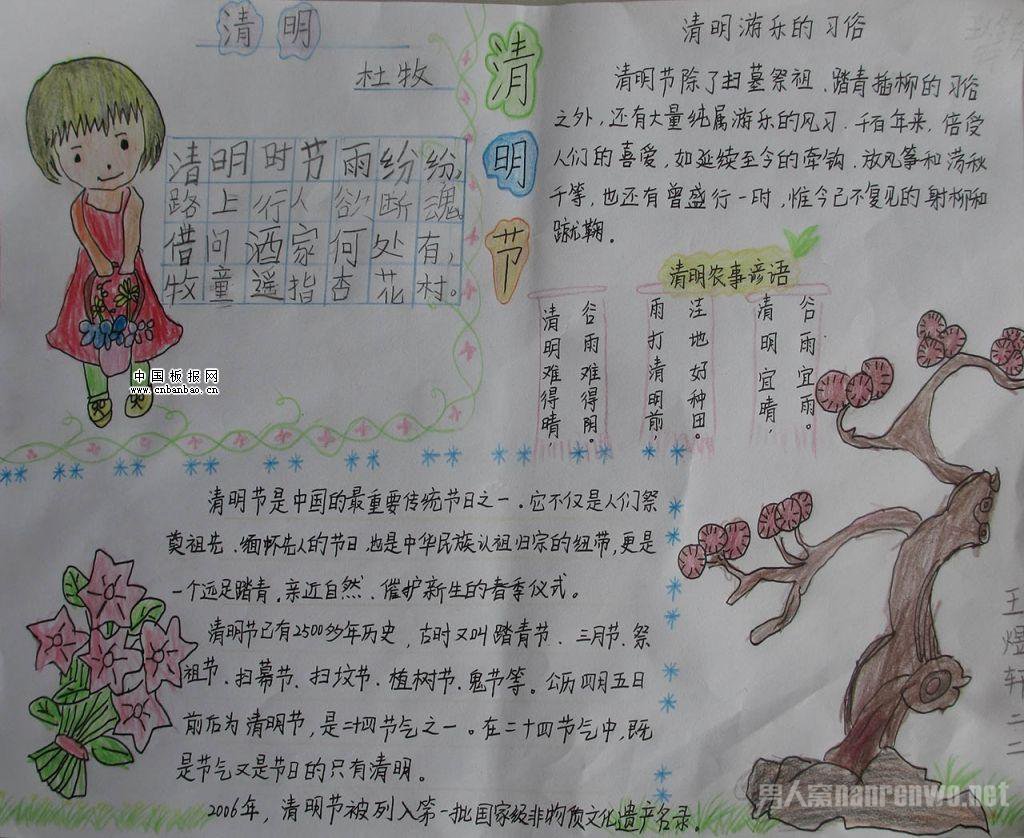 清明
杜牧
清明时节雨纷纷，
路上行人欲断魂。
借问酒家何处有，
牧童遥指杏花村。
清明节
清明游乐的习俗
清明节除了扫墓祭祖、踏青插柳的习俗
之外，还有大量纯属游乐的风习.千百年来，倍受
人们的喜爱，如延续至今的牵钩、放风筝和荡秋
千等，也还有曾盛行一时，惟今已不复见的射柳和
蹴鞠。
清明农事谚语
清明难得晴，
谷雨难得阴。
雨打清明前，
洼地好种田。
清明宜晴，
谷雨宜雨。
中国板报网
www.cnbanbao.cn
清明节是中国的最重要传统节日之一。它不仅是人们祭
奠祖先、缅怀先人的节日，也是中华民族认祖归宗的纽带，更是
一个远足踏青、亲近自然、催护新生的春季仪式。
清明节已有2500多年历史，古时又叫踏青节、三月节、祭
祖节、扫幕节、扫坟节、植树节、鬼节等。公历四月五日
前后为清明节，是二十四节气之一。在二十四节气中，既
是节气又是节日的只有清明。
2006年，清明节被列入第一批国家经非物质文化遗产名录。
王煜轩二二
男人窝nanrenwo.net